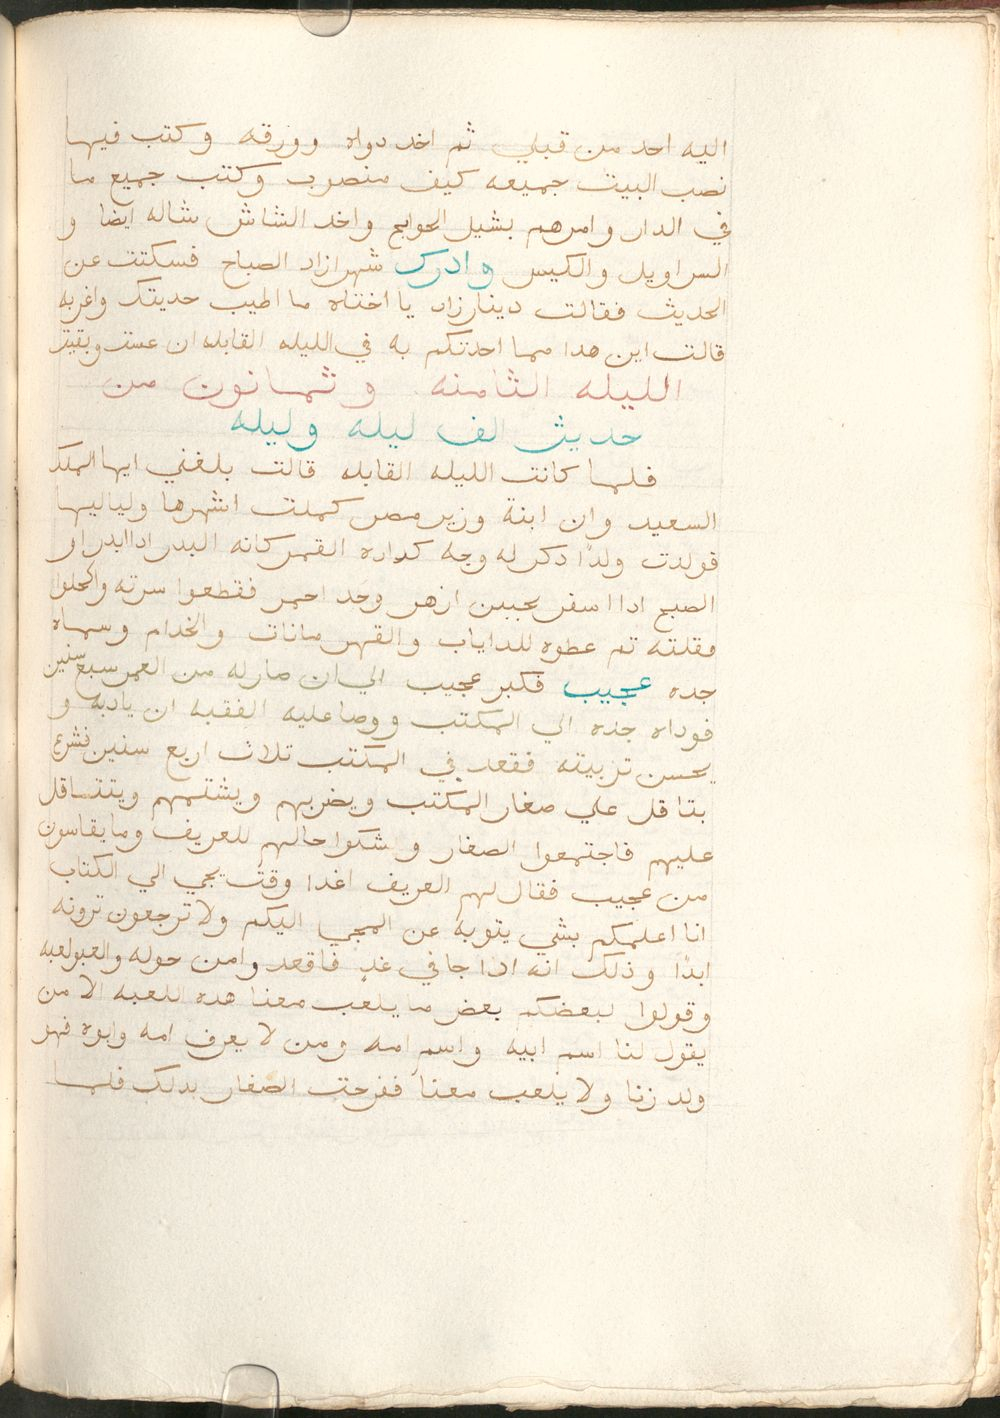 اليه احد من قبلي ثم اخد دواه وورقه وكتب فيها
نصب البيت جميعه كيف منصوب وكتب جميع ما
في الدار وامرهم بشيل الحوايج واخد الشاش شاله ايضا و
السراويل والكيس وادرك شهرازاد الصباح فسكتت عن
الحديث فقالت دينارزاد يا اختاه ما اطيب حديتك واغربه
قالت اين هدا مما احدتكم به في الليله القابله ان عست وبقيت
الليله الثامنه وثمانون من
حديث الف ليله وليله
فلما كانت الليله القابله قالت بلغني ايها الملك
السعيد وان ابنة وزير مصر كملت اشهرها ولياليها
فولدت ولدًا دكر له وجه كداره القمر كانه البدر ادا ابدر او
الصبح ادا اسفر بجبين ازهر وخد احمر فقطعوا سرته واكحلوا
مقلته تم عطوه للداياب والقهرمانات والخدام وسماه
جده عجيب فكبر عجيب الي ان صار له من العمر سبع سنين
فوداه جده الي المكتب ووصا عليه الفقيه ان يادبه و
يحسن تربيته فقعد في المكتب تلات اربع سنين فشرع
بتاقل علي صغار المكتب ويضربهم ويشتمهم ويتتاقل
عليهم فاجتمعوا الصغار وشكوا حالهم للعريف وما يقاسون
من عجيب فقال لهم العريف اغدا وقت يجي الي الكتاب
انا اعلمكم بشي يتوبه عن المجي اليكم ولا ترجعون ترونه
ابدًا وذلك انه اذا جا في غدٍ فاقعدوا من حوله والعبو لعبه
وقولوا لبعضكم بعض ما يلعب معنا هده اللعبه الا من
يقول لنا اسم ابيه واسم امه ومن لا يعرف امه وابوه فهو
ولد زنا ولا يلعب معنا ففرحت الصغار بدلك فلما